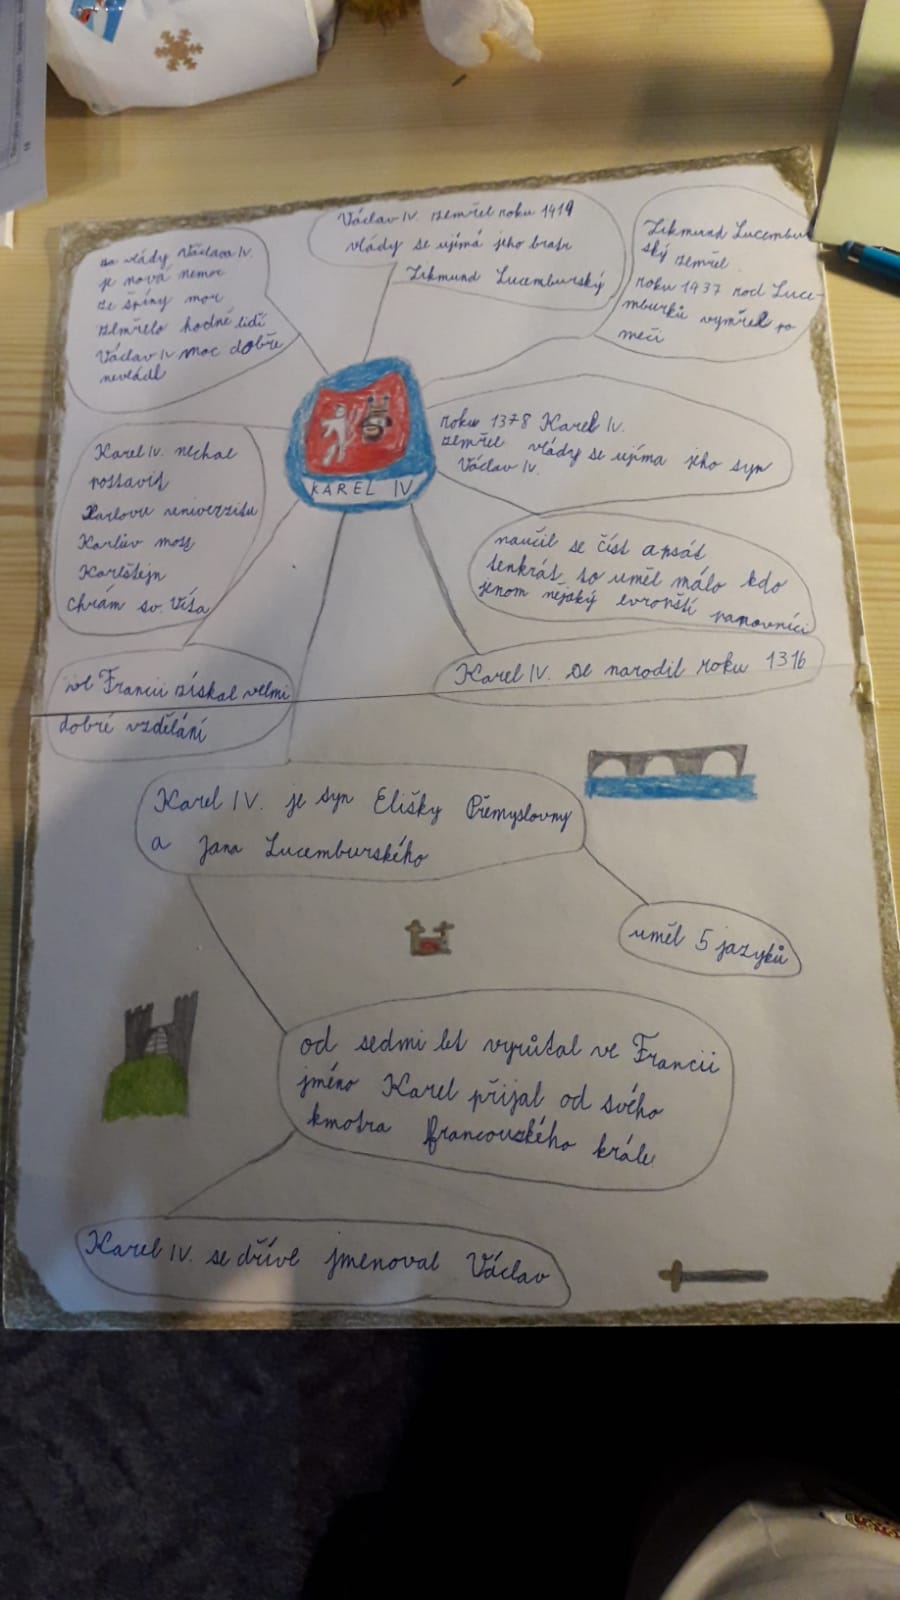 za vlády Václava IV.
je nová nemoc
ze špíny mor
zemřelo hodně lidí
Václav IV moc dobře
nevládl
Václav IV. zemřel roku 1419
vlády se ujímá jeho bratr
Zikmund Lucemburský
Zikmund Lucembur
ský zemřel
roku 1437 rod Luce-
mburků vymřel po
meči
KAREL IV
roku 1378 Karel IV.
zemřel vlády se ujíma jeho syn
Václav IV.
Karel IV. nechal
postavit
Karlovu univerzitu
Karlův most
Karlštejn
chrám sv. Víta
naučil se číst a psát
tenkrát to uměl málo kdo
jenom nějaký evropští panovníci
Karel IV. se narodil roku 1316
ve Francii získal velmi
dobré vzdělání
Karel IV. je syn Elišky Přemyslovny
a Jana Lucemburského
uměl 5 jazyků
od sedmi let vyrůtal ve Francii
jméno Karel přijal od svého
kmotra francouzského krále
Karel IV. se dříve jmenoval Václav